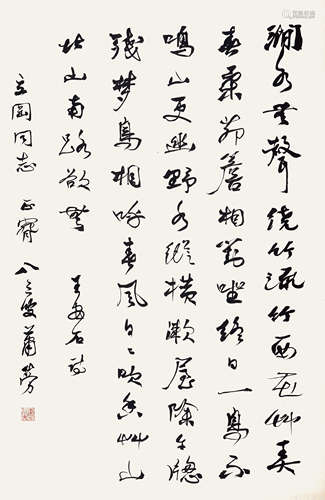 澗水無聲繞竹流竹西花艸弄
春柔茅簷相對坐終日一鳥不
鳴山更幽野水縱橫漱屋除午窗
殘夢鳥相呼春風日〻吹香艸山
北山南路欲無 王安石詩
立岡同志 正 八三叟蕭勞